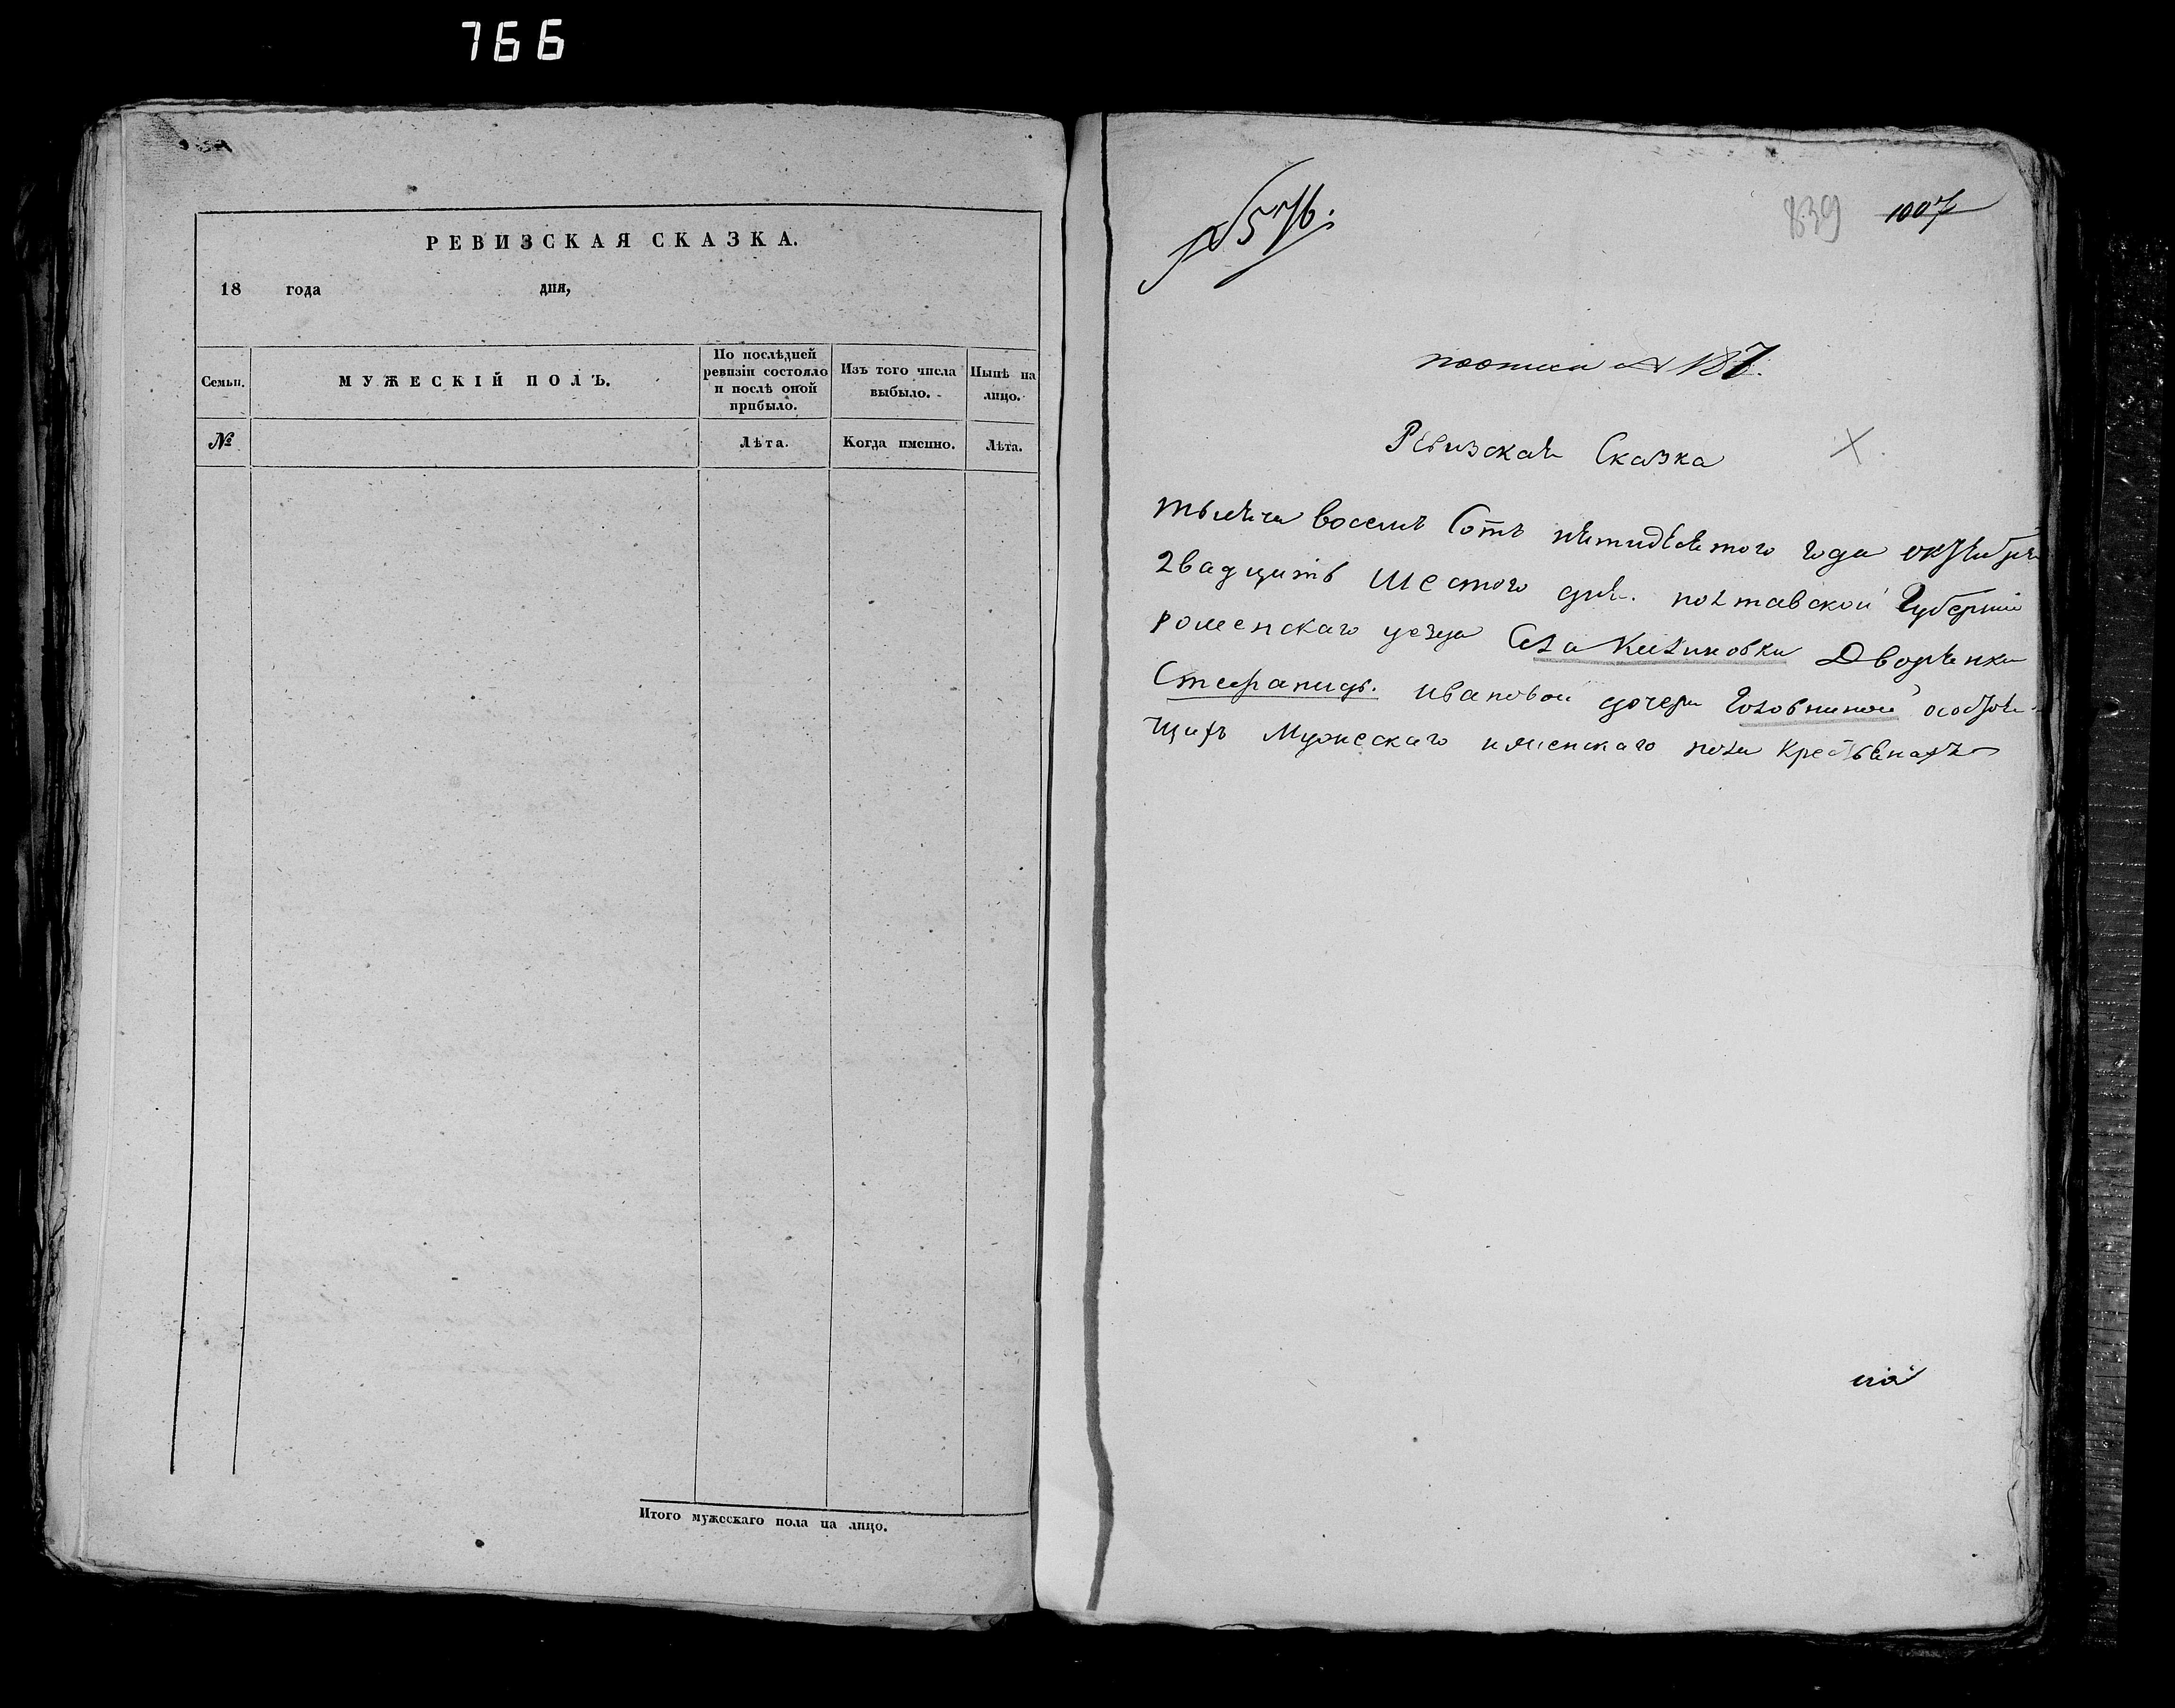 766
РЕВИЗСКАЯ СКАЗКА.
18 года дня,
Семьи.
МУЖЕСКІЙ ПОЛЪ.
По послѣдней
ревизіи состояло
и послѣ оной
прибыло.
Изъ того числа
выбыло.
Нынѣ на
лицо.
№
Лѣта.
Когда именно.
Лѣта.
Итого мужескаго пола на лицо.
№ 576.
839 1007
поописи № 187.
Ревизская Сказка
тысяча восемъ Сотъ пятидесятого года октября
двадцать шестого дня. полтавской Губерніи
роменскаго уезда Села Килиновки Дворянки
Степаниды. ивановой дочери Головниной о состоя-
щихъ Мужескаго и женскаго пола крестьянахъ